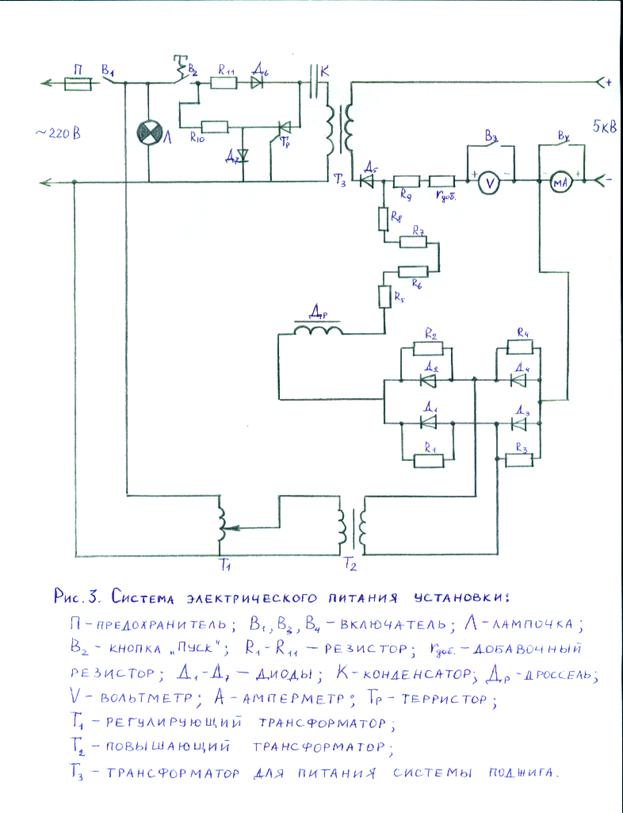 П В₁ В₂ R₁₁ Д₆ К
+
~220В Л R₁₀ Д₇ Тр 5кВ
Т₃ Д₅ R₉ rдоб. + V - В₃ - мА + В₄ -
R₈ R₇
R₆
R₅
Др
R₂ R₄
Д₂ Д₄
Д₁ Д₃
R₁ R₃
Т₁ Т₂
Рис.3. Система электрического питания установки:
П-предохранитель; В₁,В₃,В₄-включатель; Л-лампочка;
В₂-кнопка „Пуск“; R₁-R₁₁-резистор; rдоб.-добавочный
резистор; Д₁-Д₇-диоды; К-конденсатор; Др-дроссель;
V-вольтметр; А-амперметр; Тр-терристор;
Т₁-регулирующий трансформатор;
Т₂-повышающий трансформатор;
Т₃-трансформатор для питания системы поджига.